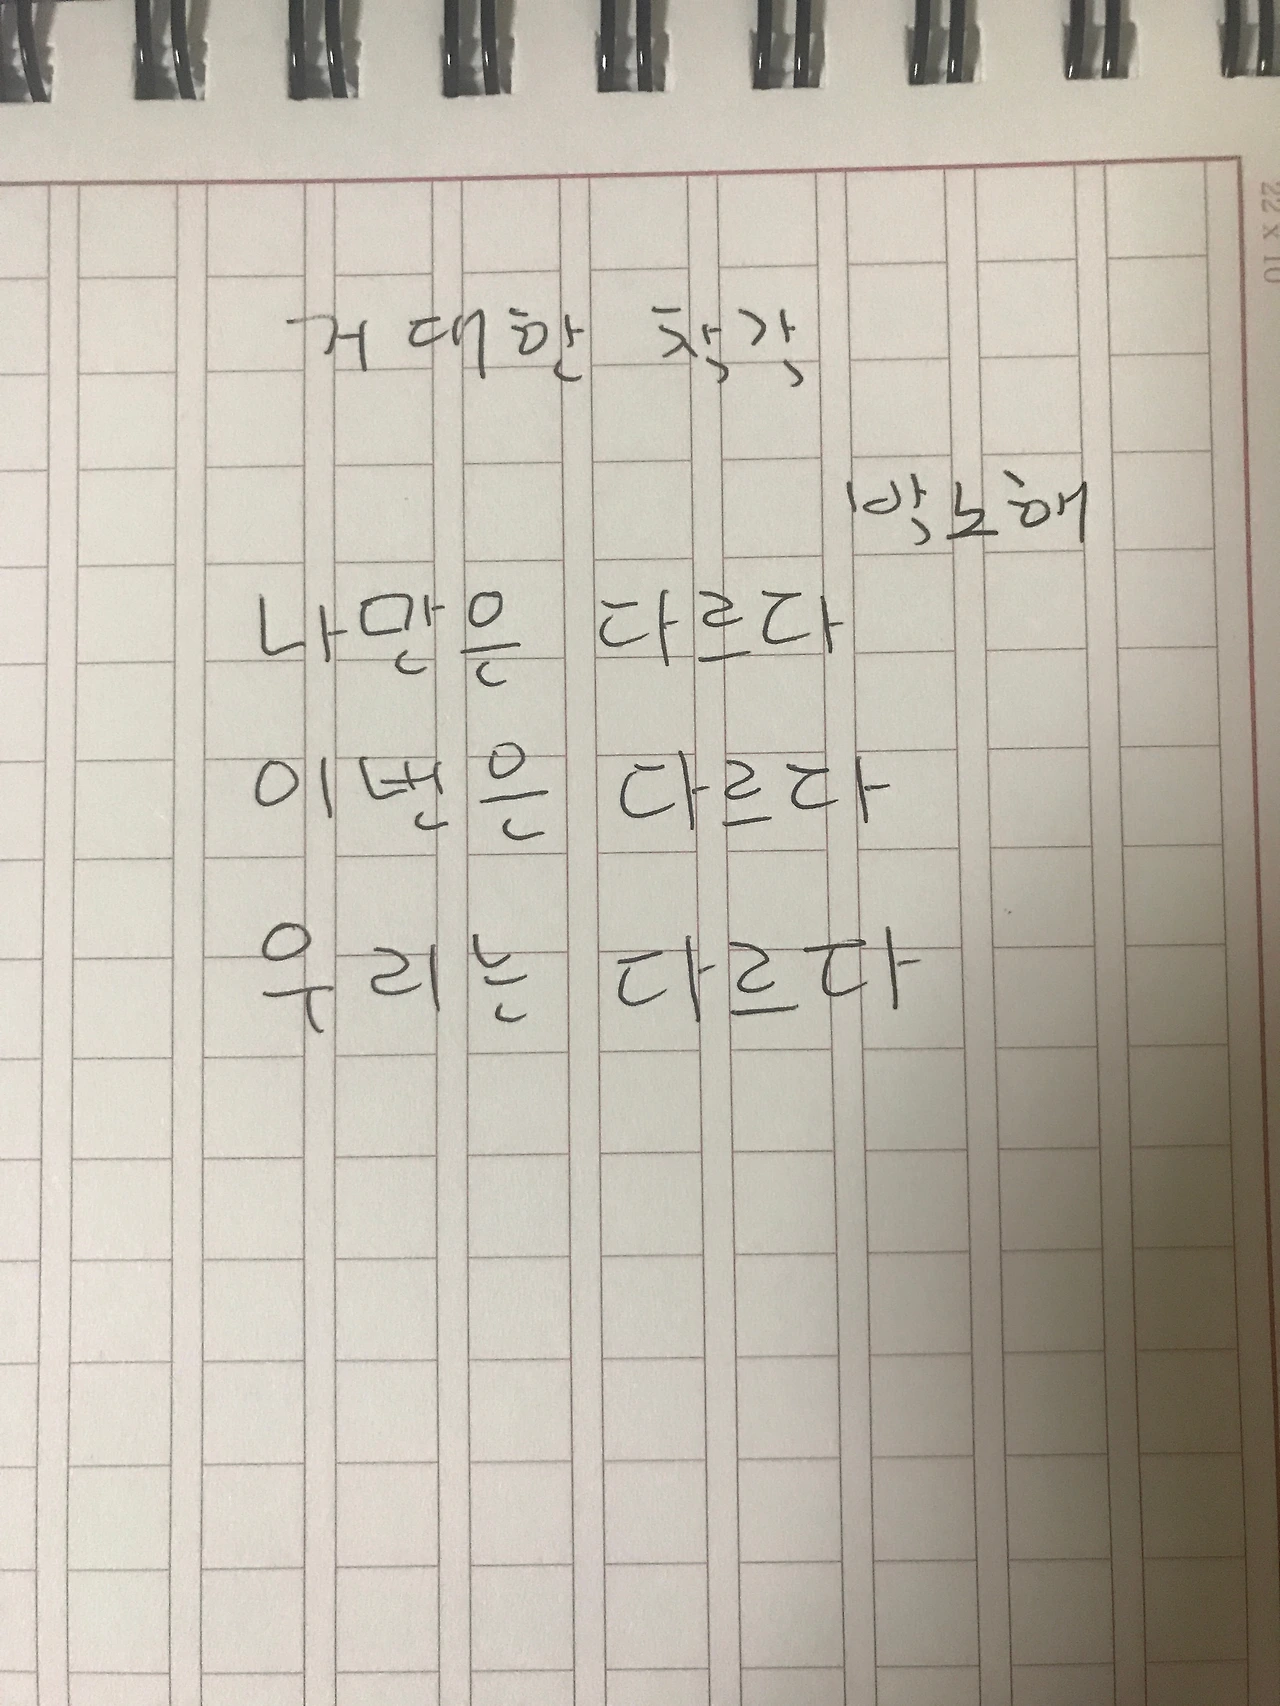 22 x 10
거대한 착각
박노해
나만은 다르다
이번은 다르다
우리는 다르다